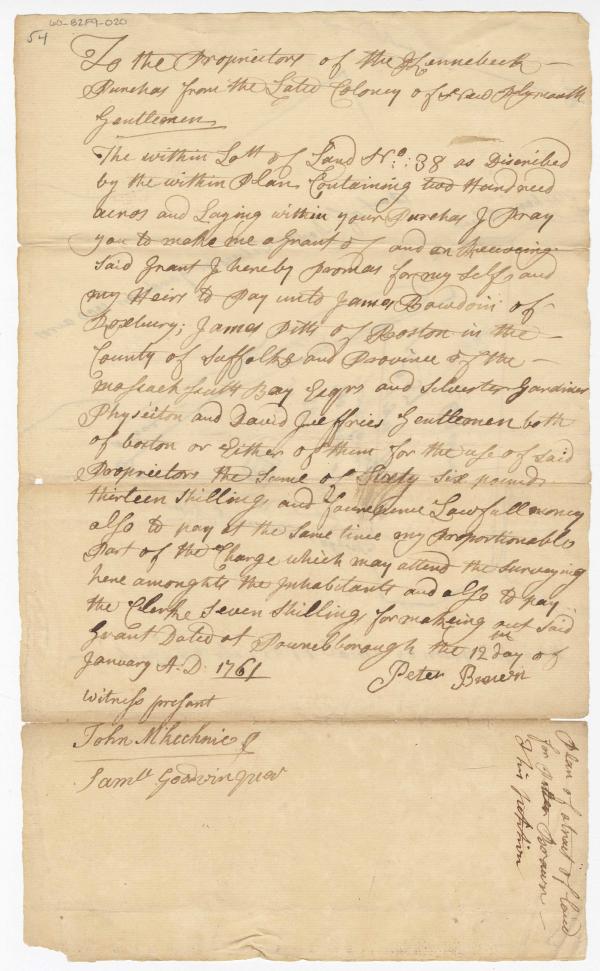 54
60-82F9-020
To the Proprietors of the Kennebeck
Purchas from the Late Coloney of New Plymouth
Gentlemen
The within Lott of Land No: 38 as Discribed
by the within Plan Containing two Hundreed
acros and Laying within your Purchas I Pray
you to make me a Grant of and on Receoeing
Said Grant I hereby Promas for my Self and
my Heirs to Pay unto James Bowdoin of
Roxbury; James Pitts of Boston in the
County of Suffolk and Province of the
Masachusetts Bay Esqrs and Silvester Gardiner
Physiciton and David Jeffries Gentlemen both
of boston or Either of them for the use of said
Proprietors the Sume of Sixty Six pounds
thirteen Shillings and fourpence Lawfull money
also to pay at the Same time my Proportionable
Part of the Charge which may attend the Surveying
here amonghts the Inhabitants and also to pay
the Clerke Seven Shillings for makeing out Said
Grant Dated at Pownelborough the 12 day of
January A.D. 1761
Peter Brown
Witness present
John McKechnie
Samll Goodwin Junr
Plan of a tract of land
for Peter Brawn
This petition